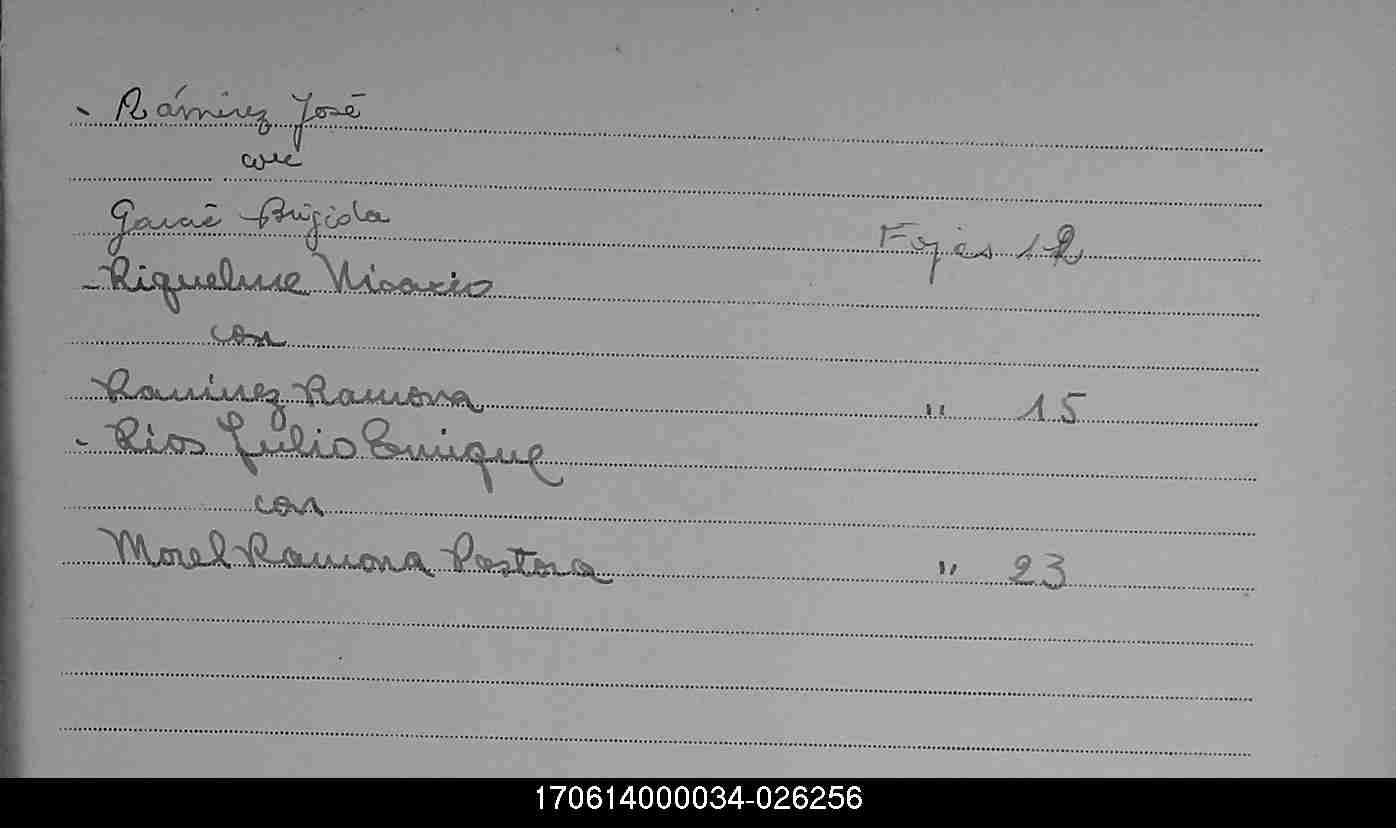 - Rámirez José
con
Garcé Brígida Fojas 12
- Riquelme Nicario
con
Ramirez Ramona " 15
- Rios Julio Enrique
con
Morel Ramona Pastora " 23
170614000034-026256